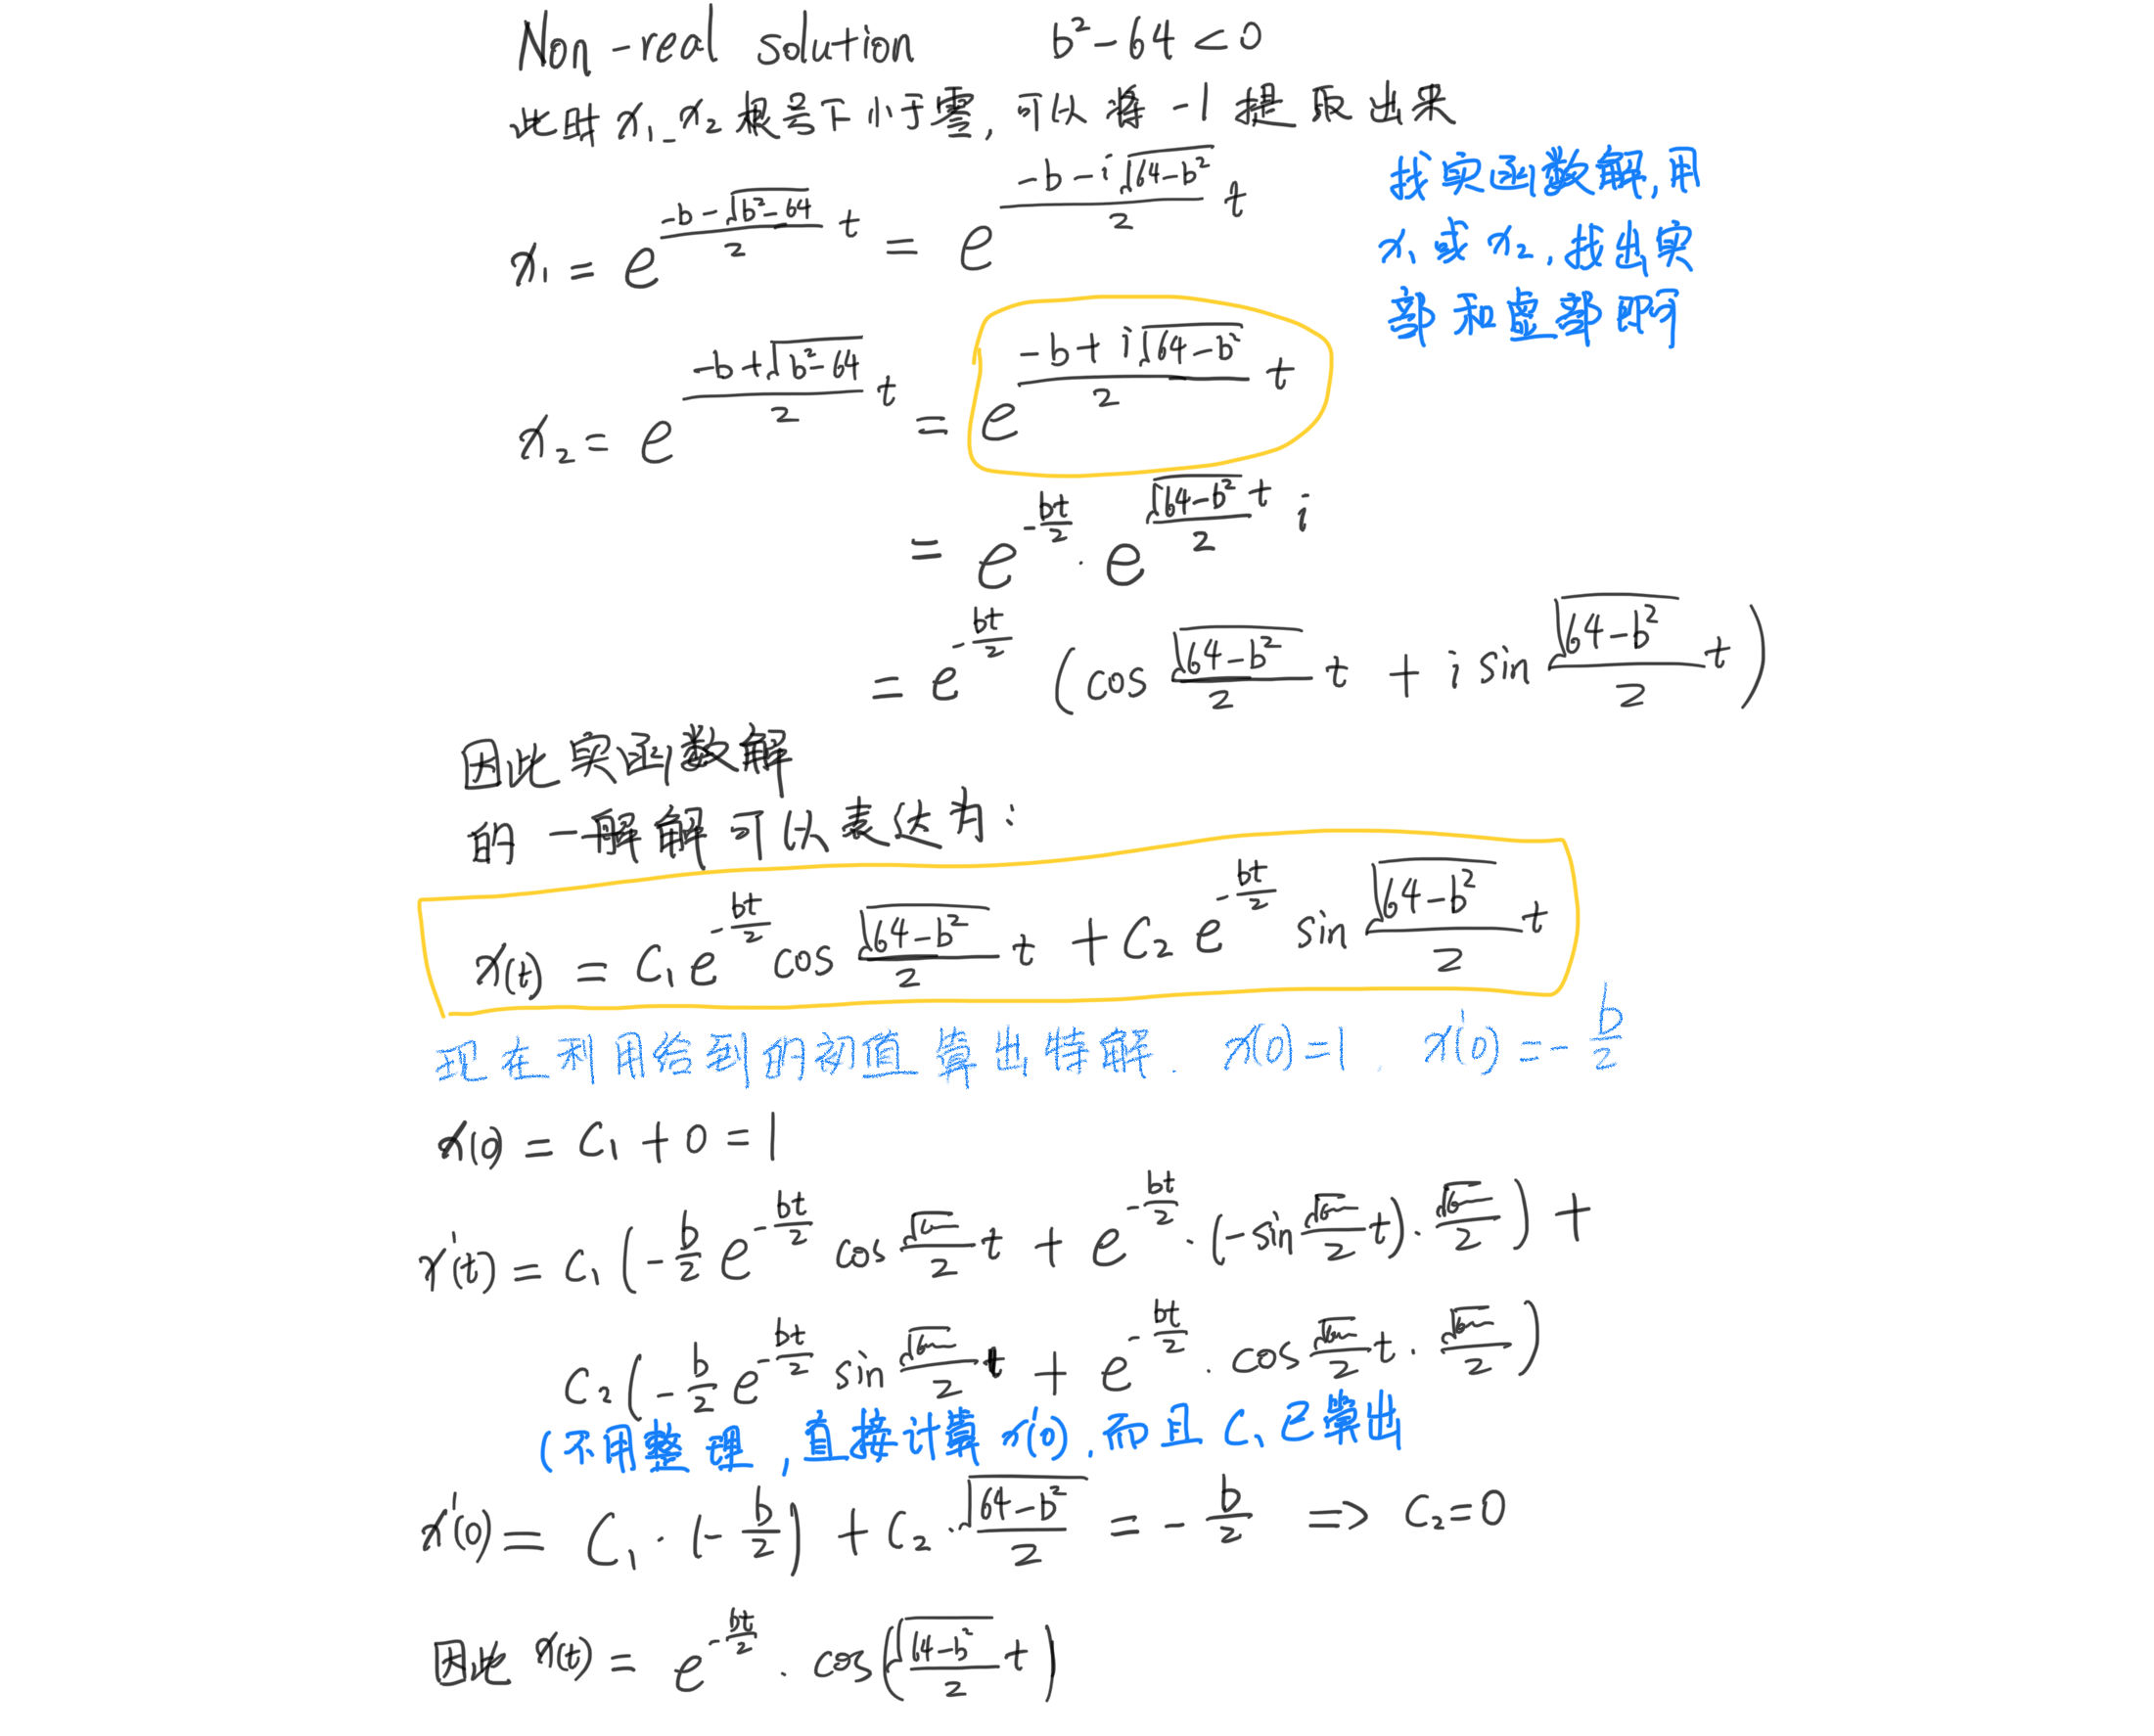 Non-real solution b²-64<0
此时 x₁ x₂ 根号下小于零, 可以将 -1 提取出来
x₁ = e^{\frac{-b-\sqrt{b²-64}}{2}t} = e^{\frac{-b-i\sqrt{64-b²}}{2}t}
找实函数解, 用
x₁ 或 x₂, 找出实
部和虚部即可
x₂ = e^{\frac{-b+\sqrt{b²-64}}{2}t} = e^{\frac{-b+i\sqrt{64-b²}}{2}t}
= e^{-\frac{bt}{2}} · e^{\frac{\sqrt{64-b²}t}{2}i}
= e^{-\frac{bt}{2}} (cos \frac{\sqrt{64-b²}}{2}t + i sin \frac{\sqrt{64-b²}}{2}t)
因此实函数解
的一解解可以表达为:
x(t) = C₁e^{-\frac{bt}{2}} cos \frac{\sqrt{64-b²}}{2}t + C₂e^{-\frac{bt}{2}} sin \frac{\sqrt{64-b²}}{2}t
现在利用给到的初值算出特解. x(0)=1, x'(0)=-\frac{b}{2}
x(0) = C₁+0=1
x'(t) = C₁(-\frac{b}{2}e^{-\frac{bt}{2}} cos \frac{\sqrt{6}}{2}t + e^{-\frac{bt}{2}}·(-sin \frac{\sqrt{6}}{2}t)·\frac{\sqrt{6}}{2}) +
C₂(-\frac{b}{2}e^{-\frac{bt}{2}} sin \frac{\sqrt{6}}{2}t + e^{-\frac{bt}{2}}·cos \frac{\sqrt{6}}{2}t·\frac{\sqrt{6}}{2})
(不用整理, 直接计算 x'(0), 而且 C₁ 已算出
x'(0) = C₁·(-\frac{b}{2}) + C₂·\frac{\sqrt{64-b²}}{2} = -\frac{b}{2} => C₂=0
因此 x(t) = e^{-\frac{bt}{2}} · cos(\frac{\sqrt{64-b²}}{2}t)